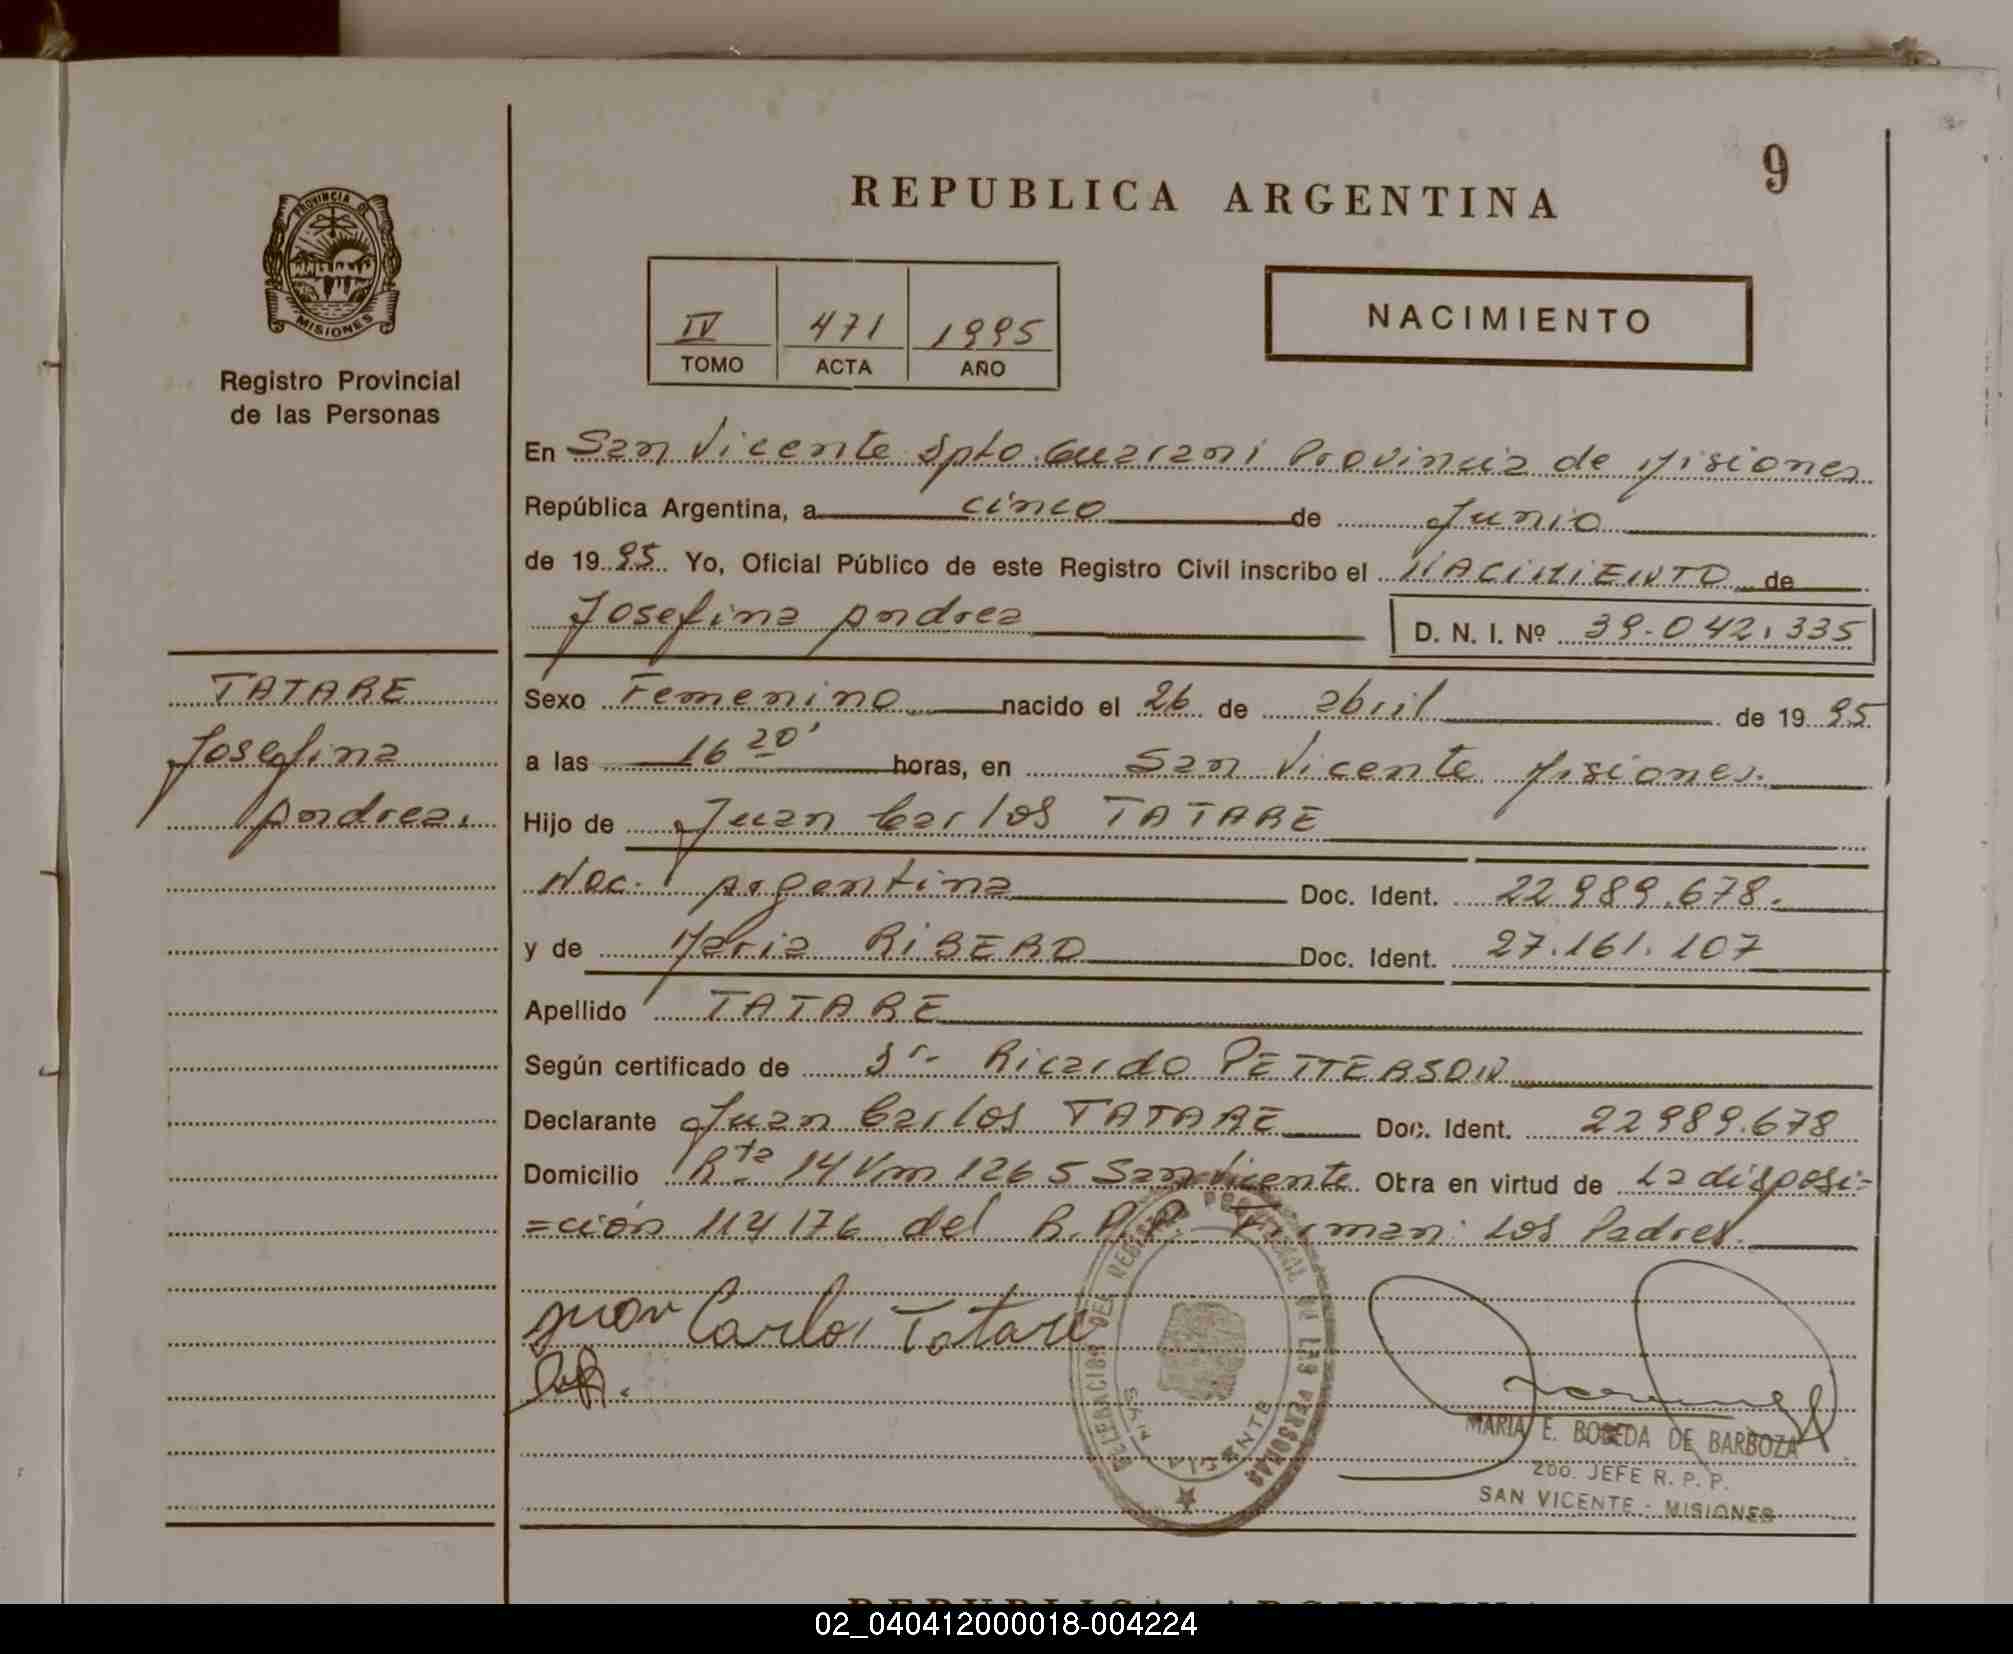 9
REPUBLICA ARGENTINA
PROVINCIA DE
MISIONES
Registro Provincial
de las Personas
IV 471 1995
TOMO ACTA AÑO
NACIMIENTO
En San Vicente Dpto. Guarani Provincia de Misiones
República Argentina, a cinco de Junio
de 1995 Yo, Oficial Público de este Registro Civil inscribo el NACIMIENTO de
Josefina Andrea D. N. I. Nº 39.042.335
TATARE
Josefina
Andrea.
Sexo Femenino nacido el 26 de abril de 1995
a las 16 20' horas, en San Vicente Misiones.
Hijo de Juan Carlos TATARE
Nac. Argentina Doc. Ident. 22989.678.
y de Maria RIBERO Doc. Ident. 27.161.107
Apellido TATARE
Según certificado de Dr. Ricardo PETTERSON
Declarante Juan Carlos TATARE Doc. Ident. 22989.678
Domicilio Rta 14 Km 1265 San Vicente Obra en virtud de La disposi=
=ción 114176 del R.P.P. Firman: Los Padres.
Juan Carlos Tatare
DELEGACION DEL REGISTRO PROVINCIAL DE LAS PERSONAS
SAN VICENTE
MARIA E. BOBEDA DE BARBOZA
2DO. JEFE R. P. P.
SAN VICENTE - MISIONES
REPUBLICA ARGENTINA
02_040412000018-004224